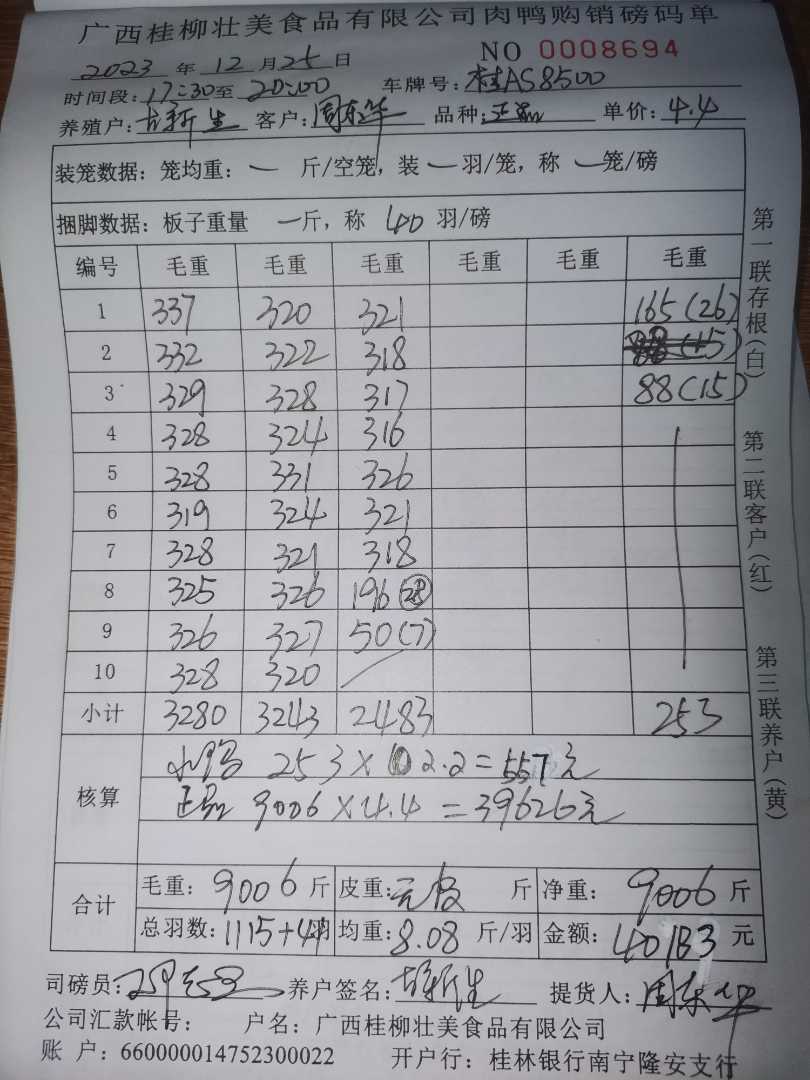 广西桂柳壮美食品有限公司肉鸭购销磅码单
2023 年 12 月 25 日 NO 0008694
时间段: 17:30 至 20:00 车牌号: 桂AS8500
养殖户: 新生 客户: 周东华 品种: 正品 单价: 4.4
装笼数据: 笼均重: 一 斤/空笼, 装 一 羽/笼, 称 一 笼/磅
捆脚数据: 板子重量 一 斤, 称 40 羽/磅
编号 毛重 毛重 毛重 毛重 毛重 毛重
1 337 320 321 165(26)
2 332 322 318
3 329 328 317 88(15)
4 328 324 316
5 328 331 326
6 319 324 321
7 328 321 318
8 325 326 196
9 326 327 50(7)
10 328 320
小计 3280 3243 2483 253
核算 小鸭 253× 2.2=557元
正品 9006×4.4=39626元
合计 毛重: 9006 斤 皮重: 元 斤 净重: 9006 斤
总羽数: 1115+41 羽 均重: 8.08 斤/羽 金额: 40183 元
司磅员: 养户签名: 新生 提货人: 周东华
公司汇款帐号: 户名: 广西桂柳壮美食品有限公司
账 户: 660000014752300022 开户行: 桂林银行南宁隆安支行
第一联存根(白)
第二联客户(红)
第三联养户(黄)